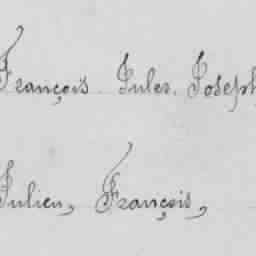 François Jules, Joseph
Julien, François,